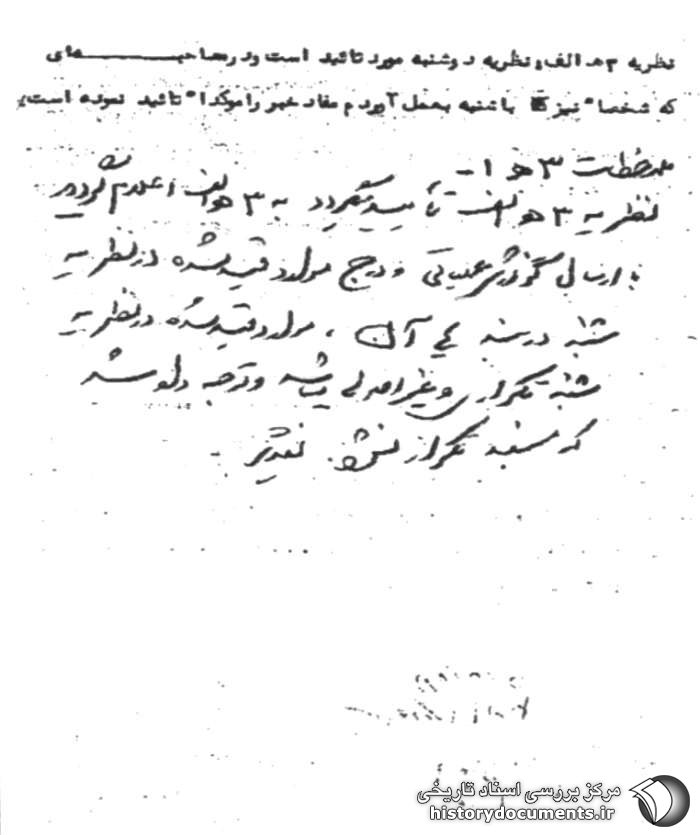 نظریه ۳ هـ الف، نظریه دوشنبه مورد تائید است ودرمصاحبـــــــــه‌ای
که شخصا" نیز با شنبه بعمل آوردم مفاد خبر راموکدا" تائید نموده است.
ملاحظات ۳ هـ ۱ ـ
نظریه ۳ هـ الف تأیید میگردد به ۳ هـ الف اعلام گردید
با ارسال گزارش عملیاتی و درج موارد قید شده در نظریه
شنبه در آن ، موارد قید شده در نظریه
شنبه تکراری و غیر اصولی میباشد و توجه داده شد
که تکرار نشود.
مرکز بررسی اسناد تاریخی
historydocuments.ir